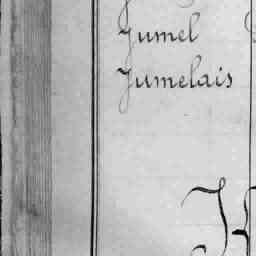 Jumel
Jumelais
K